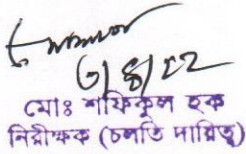 ৩/৪/২২
মোঃ শফিকুল হক
নিরীক্ষক (চলতি দায়িত্ব)